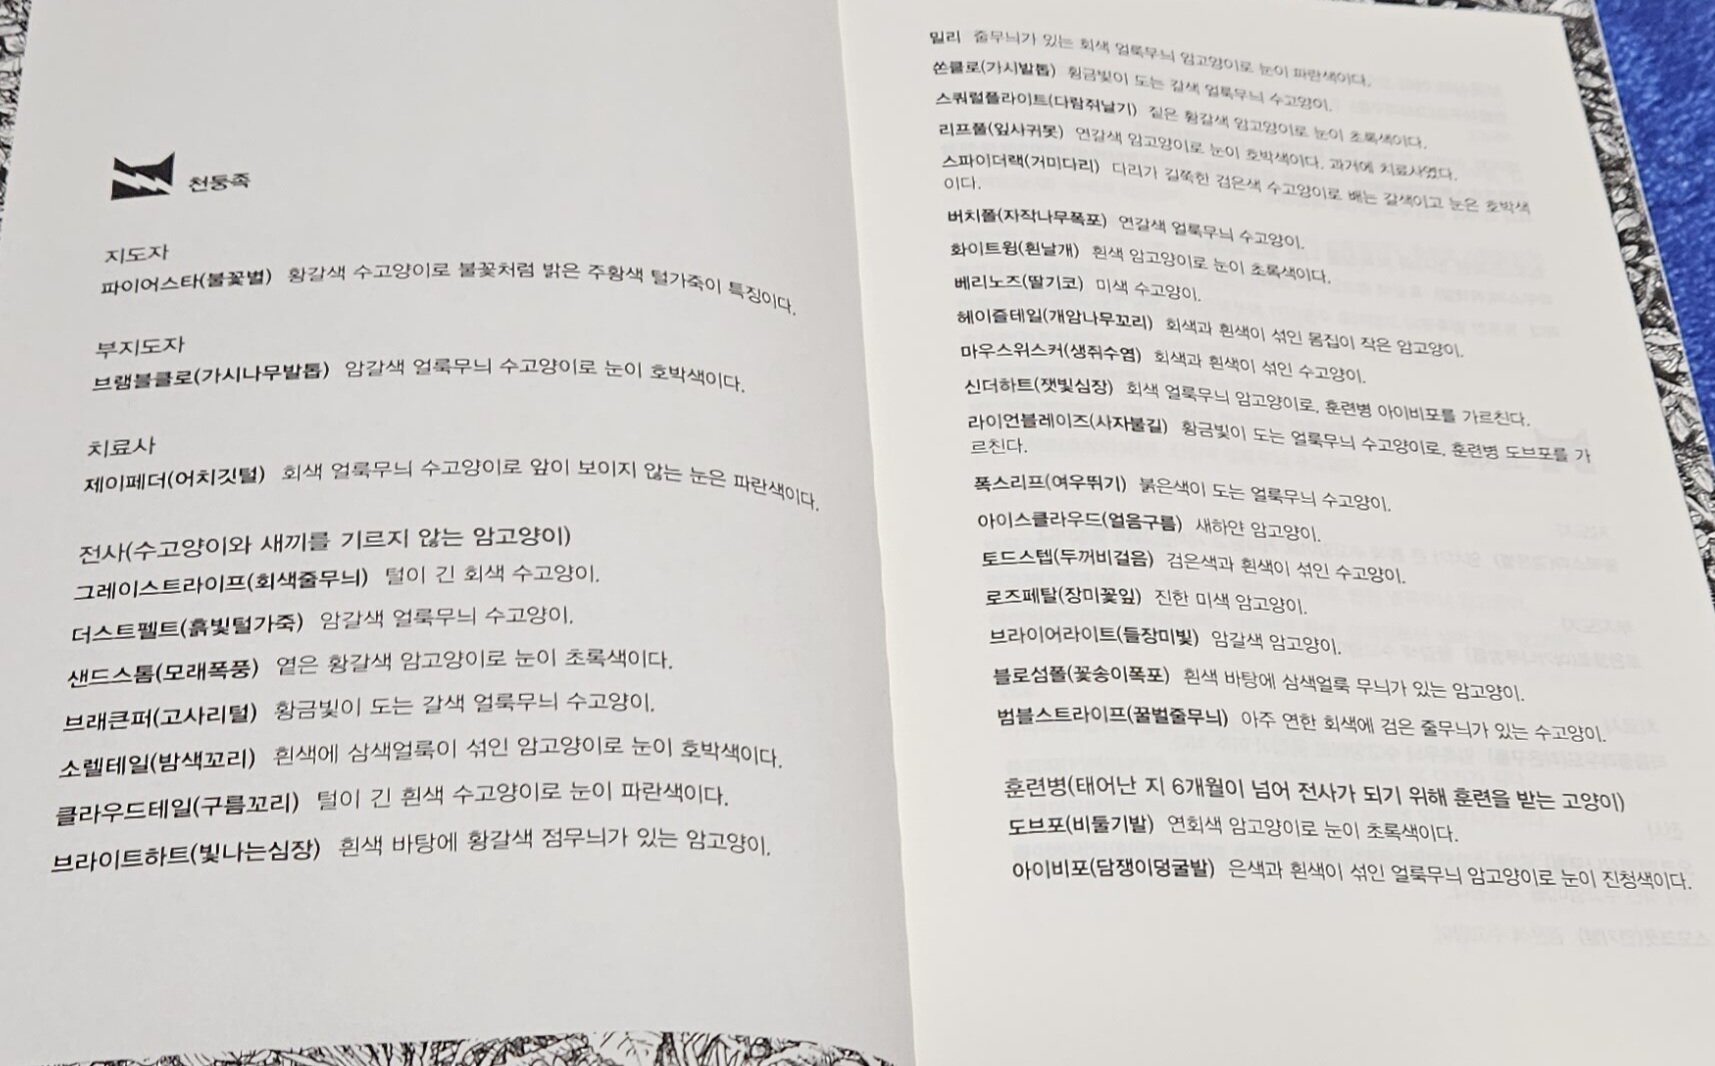 천둥족
지도자
파이어스타(불꽃별) 황갈색 수고양이로 불꽃처럼 밝은 주황색 털가죽이 특징이다.
부지도자
브램블클로(가시나무발톱) 암갈색 얼룩무늬 수고양이로 눈이 호박색이다.
치료사
제이페더(어치깃털) 회색 얼룩무늬 수고양이로 앞이 보이지 않는 눈은 파란색이다.
전사(수고양이와 새끼를 기르지 않는 암고양이)
그레이스트라이프(회색줄무늬) 털이 긴 회색 수고양이.
더스트펠트(흙빛털가죽) 암갈색 얼룩무늬 수고양이.
샌드스톰(모래폭풍) 옅은 황갈색 암고양이로 눈이 초록색이다.
브래큰퍼(고사리털) 황금빛이 도는 갈색 얼룩무늬 수고양이.
소렐테일(밤색꼬리) 흰색에 삼색얼룩이 섞인 암고양이로 눈이 호박색이다.
클라우드테일(구름꼬리) 털이 긴 흰색 수고양이로 눈이 파란색이다.
브라이트하트(빛나는심장) 흰색 바탕에 황갈색 점무늬가 있는 암고양이.
밀리 줄무늬가 있는 회색 얼룩무늬 암고양이로 눈이 파란색이다.
쏜클로(가시발톱) 황금빛이 도는 갈색 얼룩무늬 수고양이.
스쿼럴플라이트(다람쥐날기) 짙은 황갈색 암고양이로 눈이 초록색이다.
리프풀(잎사귀못) 연갈색 암고양이로 눈이 호박색이다. 과거에 치료사였다.
스파이더렉(거미다리) 다리가 길쭉한 검은색 수고양이로 배는 갈색이고 눈은 호박색
이다.
버치폴(자작나무폭포) 연갈색 얼룩무늬 수고양이.
화이트윙(흰날개) 흰색 암고양이로 눈이 초록색이다.
베리노즈(딸기코) 미색 수고양이.
헤이즐테일(개암나무꼬리) 회색과 흰색이 섞인 몸집이 작은 암고양이.
마우스위스커(생쥐수염) 회색과 흰색이 섞인 수고양이.
신더하트(잿빛심장) 회색 얼룩무늬 암고양이로, 훈련병 아이비포를 가르친다.
라이언블레이즈(사자불길) 황금빛이 도는 얼룩무늬 수고양이로, 훈련병 도브포를 가
르친다.
폭스리프(여우뛰기) 붉은색이 도는 얼룩무늬 수고양이.
아이스클라우드(얼음구름) 새하얀 암고양이.
토드스텝(두꺼비걸음) 검은색과 흰색이 섞인 수고양이.
로즈페탈(장미꽃잎) 진한 미색 암고양이.
브라이어라이트(들장미빛) 암갈색 암고양이.
블로섬폴(꽃송이폭포) 흰색 바탕에 삼색얼룩 무늬가 있는 암고양이.
범블스트라이프(꿀벌줄무늬) 아주 연한 회색에 검은 줄무늬가 있는 수고양이.
훈련병(태어난 지 6개월이 넘어 전사가 되기 위해 훈련을 받는 고양이)
도브포(비둘기발) 연회색 암고양이로 눈이 초록색이다.
아이비포(담쟁이덩굴발) 은색과 흰색이 섞인 얼룩무늬 암고양이로 눈이 진청색이다.